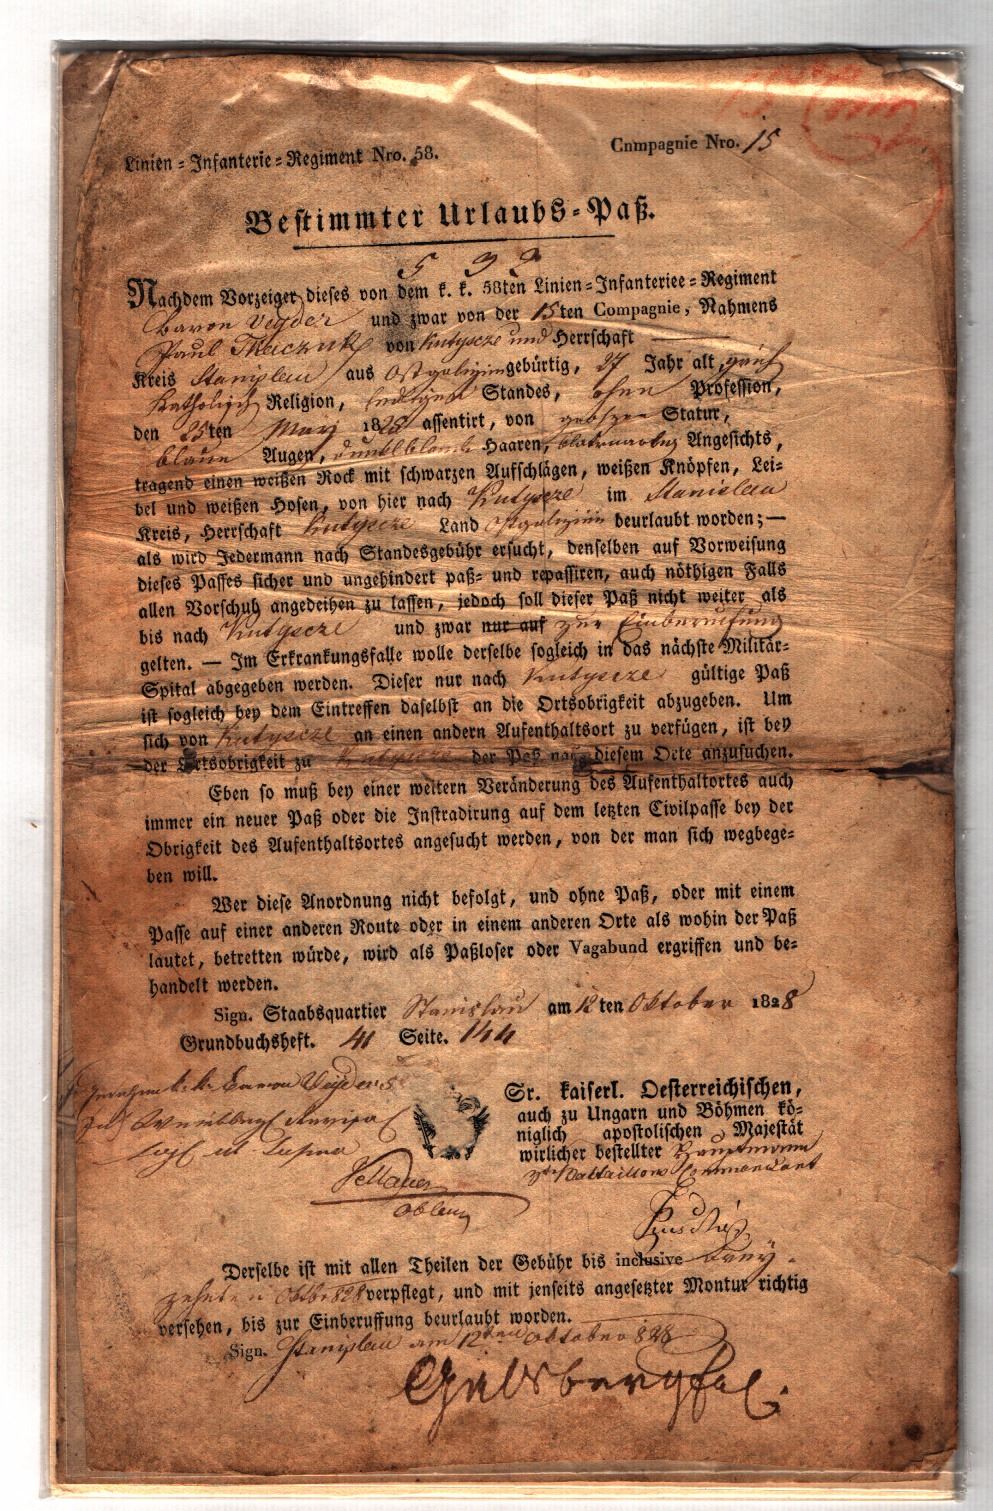 Linien=Infanterie=Regiment Nro. 58.
Cnmpagnie Nro. 15
Bestimmter Urlaubs=Paß.
Nachdem Vorzeiger dieses von dem k. k. 58ten Linien=Infanteriee=Regiment
Baron und zwar von der 15ten Compagnie, Nahmens
Paul Tkaczuk von Kutyscze und Herrschaft
Kreis Stanislau aus Ostgalizien gebürtig, 27 Jahr alt,
Katholisch Religion, ledigen Standes, ohne Profession,
den 25ten März 1828 assentirt, von Statur,
blaue Augen, dunkelblonde Haaren, Angesichts,
tragend einen weißen Rock mit schwarzen Aufschlägen, weißen Knöpfen, Lei=
bel und weißen Hosen, von hier nach Kutyscze im Stanislau
Kreis, Herrschaft Kutyscze Land Ostgalizien beurlaubt worden; —
als wird Jedermann nach Standesgebühr ersucht, denselben auf Vorweisung
dieses Passes sicher und ungehindert paß= und repassiren, auch nöthigen Falls
allen Vorschub angedeihen zu lassen, jedoch soll dieser Paß nicht weiter als
bis nach Kutyscze und zwar nur auf zur Einberufung
gelten. — Im Erkrankungsfalle wolle derselbe sogleich in das nächste Militär=
Spital abgegeben werden. Dieser nur nach Kutyscze gültige Paß
ist sogleich bey dem Eintreffen daselbst an die Ortsobrigkeit abzugeben. Um
sich von Kutyscze an einen andern Aufenthaltsort zu verfügen, ist bey
der Ortsobrigkeit zu Kutyscze der Paß nach diesem Orte anzusuchen.
Eben so muß bey einer weitern Veränderung des Aufenthaltortes auch
immer ein neuer Paß oder die Instradirung auf dem letzten Civilpasse bey der
Obrigkeit des Aufenthaltsortes angesucht werden, von der man sich wegbege=
ben will.
Wer diese Anordnung nicht befolgt, und ohne Paß, oder mit einem
Passe auf einer anderen Route oder in einem anderen Orte als wohin der Paß
lautet, betretten würde, wird als Paßloser oder Vagabund ergriffen und be=
handelt werden.
Sign. Staabsquartier Stanislau am 12ten Oktober 1828
Grundbuchsheft. 41 Seite. 144
k. k. Baron
Sr. kaiserl. Oesterreichischen,
auch zu Ungarn und Böhmen kö=
niglich apostolischen Majestät
wirlicher bestellter Hauptmann
Bataillons Commandant
Derselbe ist mit allen Theilen der Gebühr bis inclusive Drey=
zehnten Oktbr 828 verpflegt, und mit jenseits angesetzter Montur richtig
versehen, bis zur Einberuffung beurlaubt worden.
Sign. Stanislau am 12ten Oktober 828